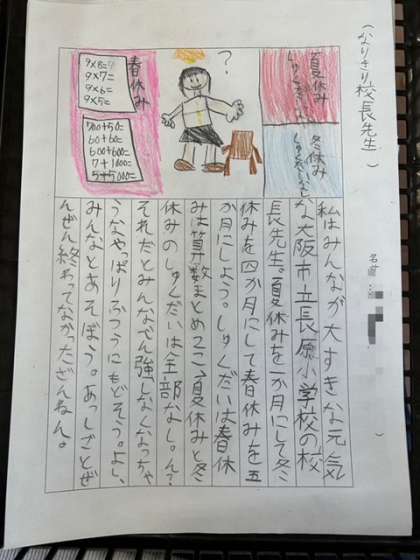 （なりきり校長先生）
名前：
夏休み
しゅくだいなし
冬休み
しゅくだいなし
？
春休み
9×8=?
9×7=
9×6=
9×5=
60+60=
600+600=
7+1000=
5+5000=
私はみんなが大すきな元気
な大阪市立長原小学校の校
長先生。夏休みを一か月にして冬
休みを四か月にして春休みを五
か月にしよう。しゅくだいは春休
みは算数まとめ2こ、夏休みと冬
休みのしゅくだいは全部なし。ん？
それだとみんなべん強しなくなっちゃ
うなやっぱりふつうにもどそう。よし、
みんなとあそぼう。あっしごとぜ
んぜん終わってなかったざんねん。